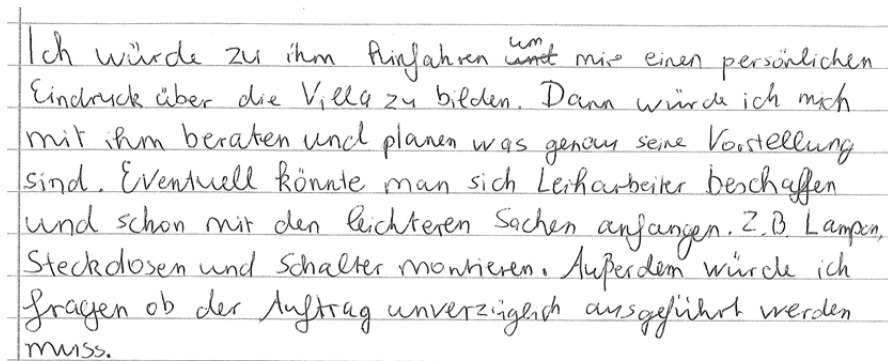 Ich würde zu ihm hinfahren um mir einen persönlichen
Eindruck über die Villa zu bilden. Dann würde ich mich
mit ihm beraten und planen was genau seine Vorstellung
sind. Eventuell könnte man sich Leiharbeiter beschaffen
und schon mit den leichteren Sachen anfangen. Z.B. Lampen,
Steckdosen und Schalter montieren. Außerdem würde ich
fragen ob der Auftrag unverzüglich ausgeführt werden
muss.